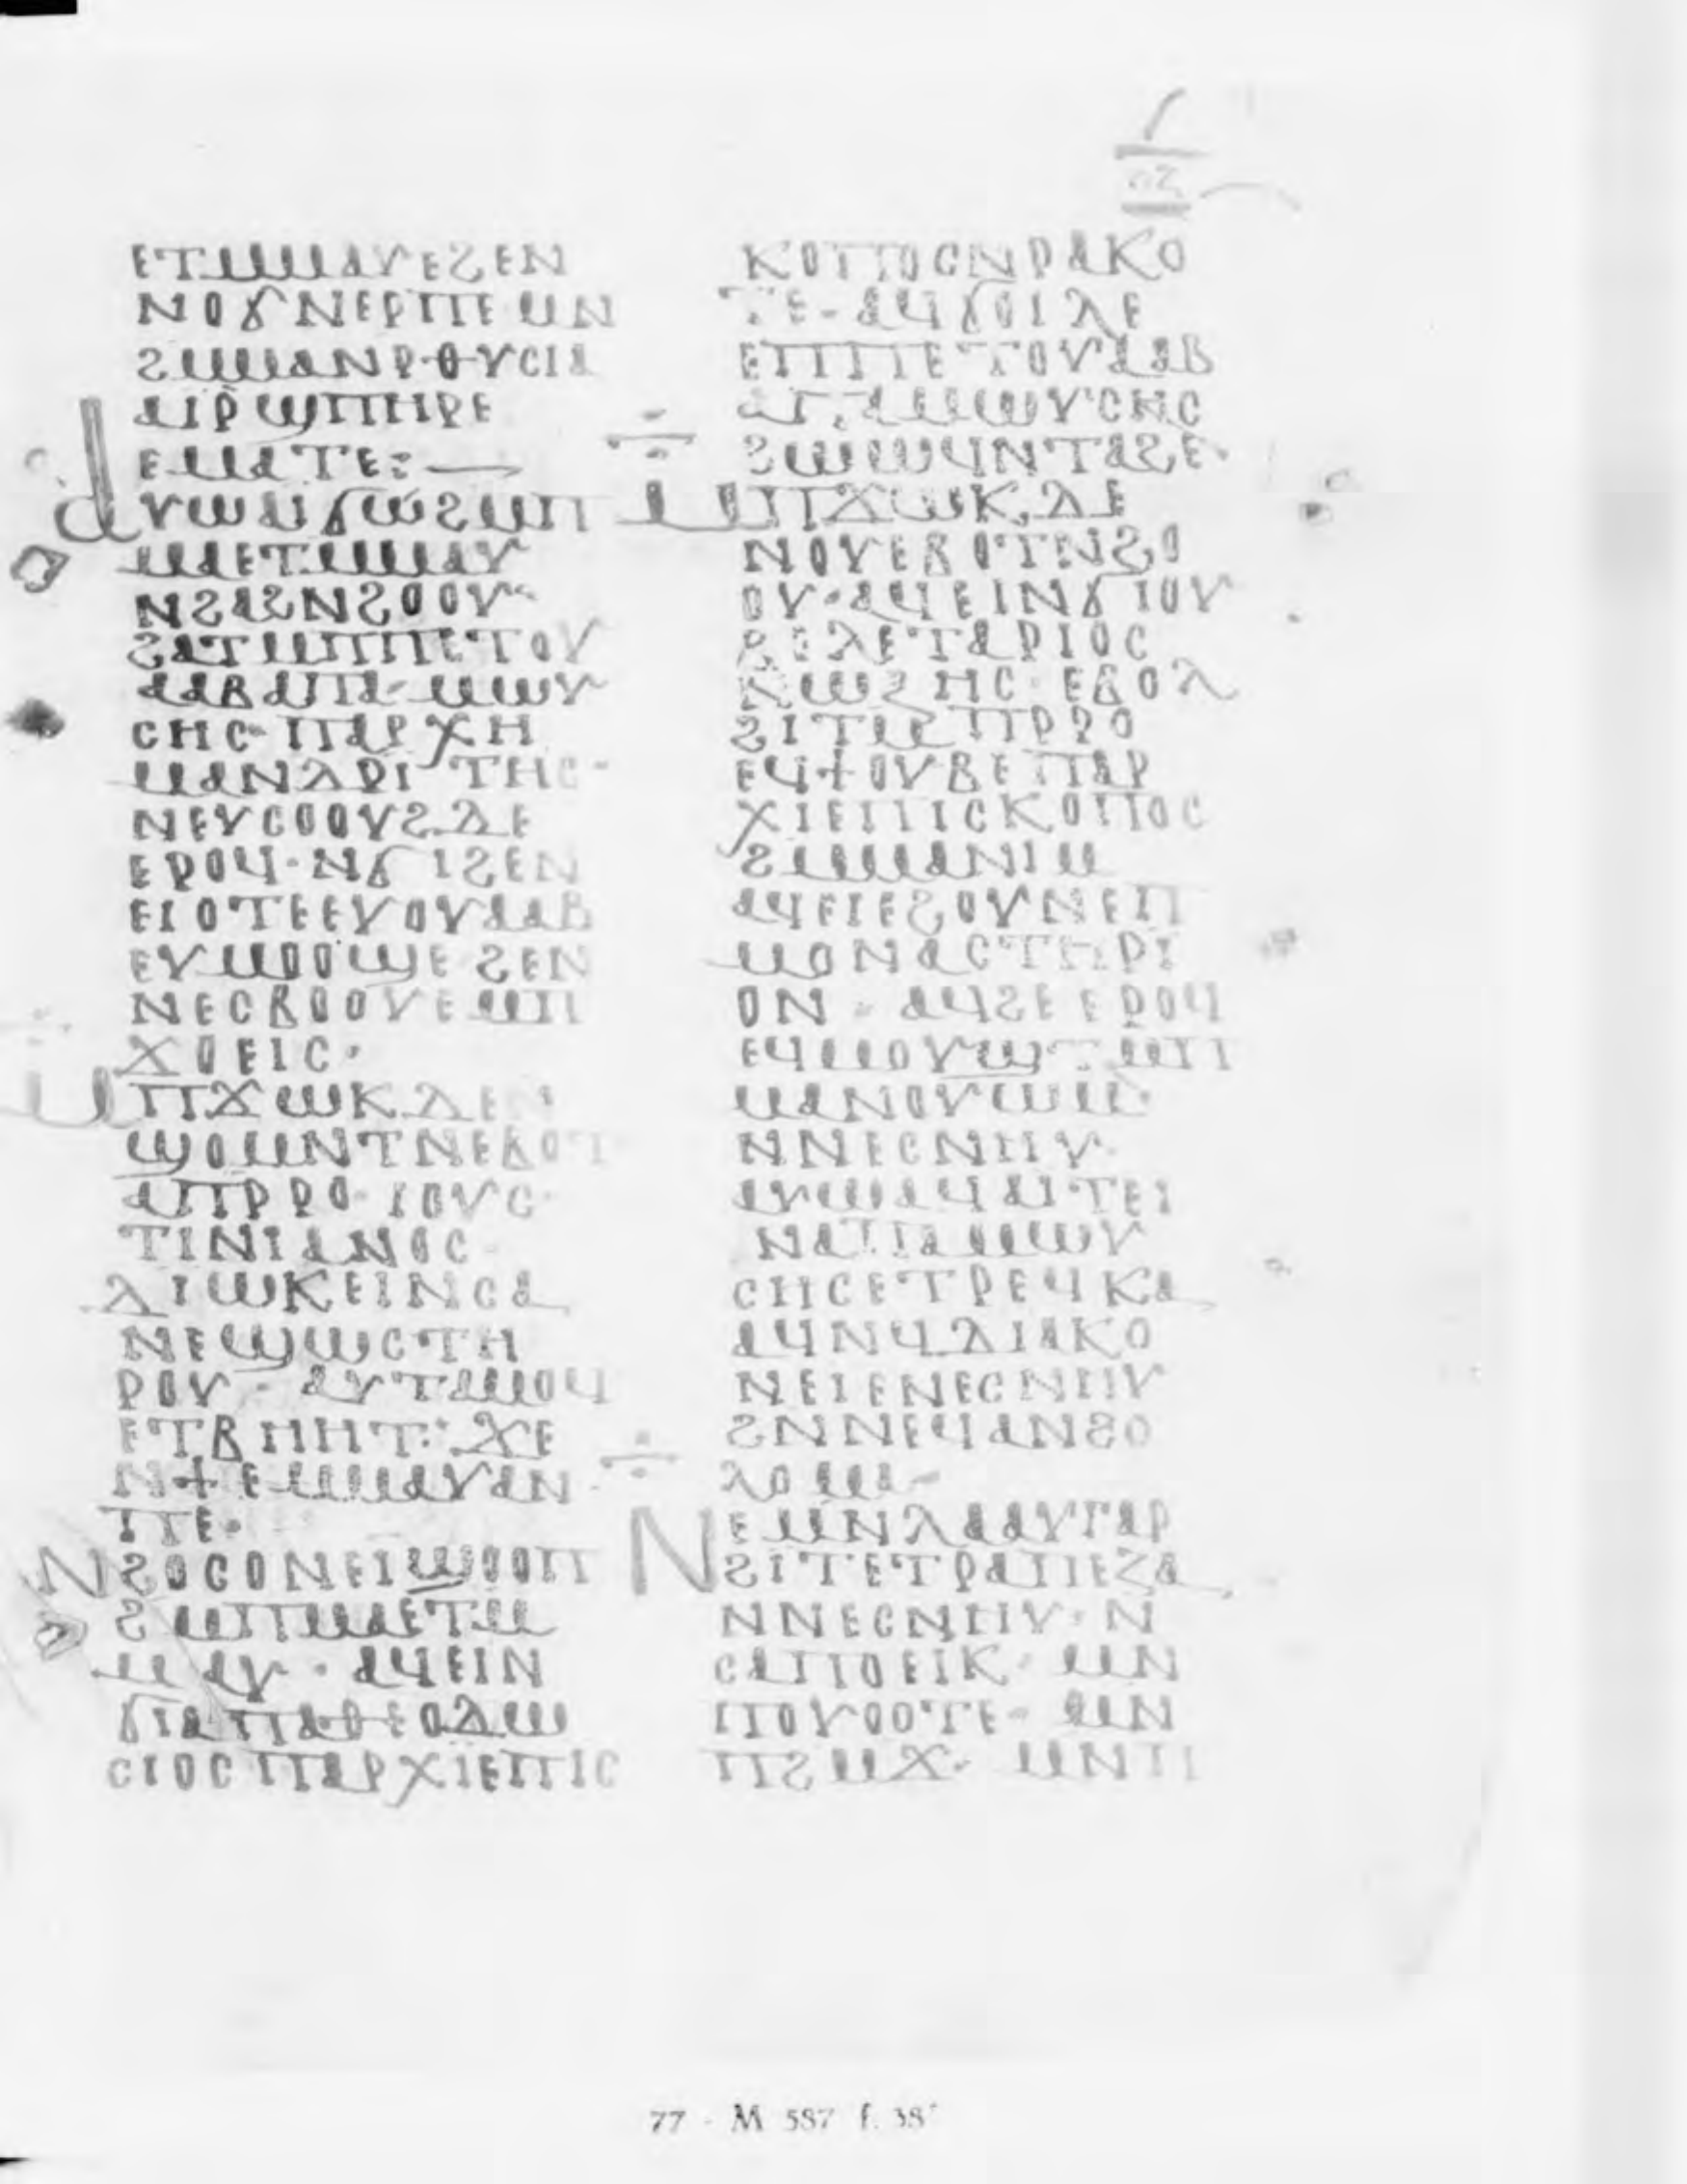 ⲉⲧⲙⲙⲁⲩⲉϩⲉⲛ
ⲛⲟϭⲛⲉⲣⲡⲉⲙⲛ
ϩⲙⲙⲁⲛⲣⲑⲩⲥⲓⲁ
ⲁⲓⲣϣⲡⲏⲣⲉ
ⲉⲙⲁⲧⲉ:—
ⲁⲩⲱⲁⲓϭⲱϩⲙⲡ
ⲙⲁⲉⲧⲙⲙⲁⲩ
ⲛϩⲁϩⲛϩⲟⲟⲩ·
ϩⲁⲧⲙⲡⲡⲉⲧⲟⲩ
ⲁⲁⲃⲁⲡⲁ·ⲙⲱⲩ
ⲥⲏⲥ·ⲡⲁⲣⲭⲏ
ⲙⲁⲛⲇⲣⲓⲧⲏⲥ·
ⲛⲉⲩⲥⲟⲟⲩϩⲇⲉ
ⲉⲣⲟϥ·ⲛϭⲓϩⲉⲛ
ⲉⲓⲟⲧⲉⲉⲩⲟⲩⲁⲁⲃ
ⲉⲩⲙⲟⲟϣⲉϩⲉⲛ
ⲛⲉⲥⲃⲟⲟⲩⲉⲙⲡ
ϫⲟⲉⲓⲥ·
ⲙⲡϫⲱⲕⲇⲉⲛ
ϣⲟⲙⲛⲧⲛⲉⲃⲟⲧ
ⲁⲡⲣⲣⲟ·ⲓⲟⲩⲥ·
ⲧⲓⲛⲓⲁⲛⲟⲥ·
ⲇⲓⲱⲕⲉⲓⲛⲥⲁ
ⲛⲉϣⲱⲥⲧⲏ
ⲣⲟⲩ·ⲁⲩⲧⲁⲙⲟϥ
ⲉⲧⲃⲏⲏⲧ:ϫⲉ
ⲛϯⲉⲙⲙⲁⲩⲁⲛ·
ⲡⲉ·
ⲛϩⲟⲥⲟⲛⲉⲓϣⲟⲟⲡ
ϩⲙⲡⲙⲁⲉⲧⲙ
ⲙⲁⲩ·ⲁϥⲉⲓⲛ
ϭⲓⲁⲡⲁⲑⲉⲟⲇⲱ
ⲥⲓⲟⲥⲡⲁⲣⲭⲓⲉⲡⲓⲥ
ⲕⲟⲡⲟⲥⲛⲣⲁⲕⲟ
ⲧⲉ·ⲁϥϭⲟⲓⲗⲉ
ⲉⲡⲡⲉⲧⲟⲩⲁⲁⲃ
ⲁⲡⲁⲙⲱⲩⲥⲏⲥ
ϩⲱⲱϥⲛⲧⲁϩⲉ·
ⲙⲡϫⲱⲕⲇⲉ
ⲛⲟⲩⲉⲃⲟⲧⲛϩⲟ
ⲟⲩ·ⲁϥⲉⲓⲛϭⲓⲟⲩ
ⲃⲉⲗⲉⲧⲁⲣⲓⲟⲥ
ⲛⲱϩⲏⲥ·ⲉⲃⲟⲗ
ϩⲓⲧⲙⲡⲣⲣⲟ
ⲉϥϯⲟⲩⲃⲉⲡⲁⲣ
ⲭⲓⲉⲡⲓⲥⲕⲟⲡⲟⲥ
ϩⲙⲙⲁⲛⲓⲙ
ⲁϥⲉⲓⲉϩⲟⲩⲛⲉⲡ
ⲙⲟⲛⲁⲥⲧⲏⲣⲓ
ⲟⲛ·ⲁϥϩⲉⲉⲣⲟϥ
ⲉϥⲙⲟⲩϣⲧⲙⲡ
ⲙⲁⲛⲟⲩⲱⲙ·
ⲛⲛⲉⲥⲛⲏⲩ·
ⲁⲩⲱⲁϥⲁⲓⲧⲉⲓ
ⲛⲁⲡⲁⲙⲱⲩ
ⲥⲏⲥⲉⲧⲣⲉϥⲕⲁ
ⲁϥⲛϥⲇⲓⲁⲕⲟ
ⲛⲉⲓⲉⲛⲉⲥⲛⲏⲩ
ϩⲛⲛⲉϥⲁⲛϩⲟ
ⲗⲟⲙⲁ·
ⲛⲉⲙⲛⲗⲁⲁⲩⲅⲁⲣ
ⲛϩⲓⲧⲉⲧⲣⲁⲡⲉⲍⲁ
ⲛⲛⲉⲥⲛⲏⲩ·ⲛ
ⲥⲁⲡⲟⲉⲓⲕ·ⲙⲛ
ⲡⲟⲩⲟⲟⲧⲉ·ⲙⲛ
ⲡϩⲙϫ·ⲙⲛⲡ
77 - M 587 f. 38